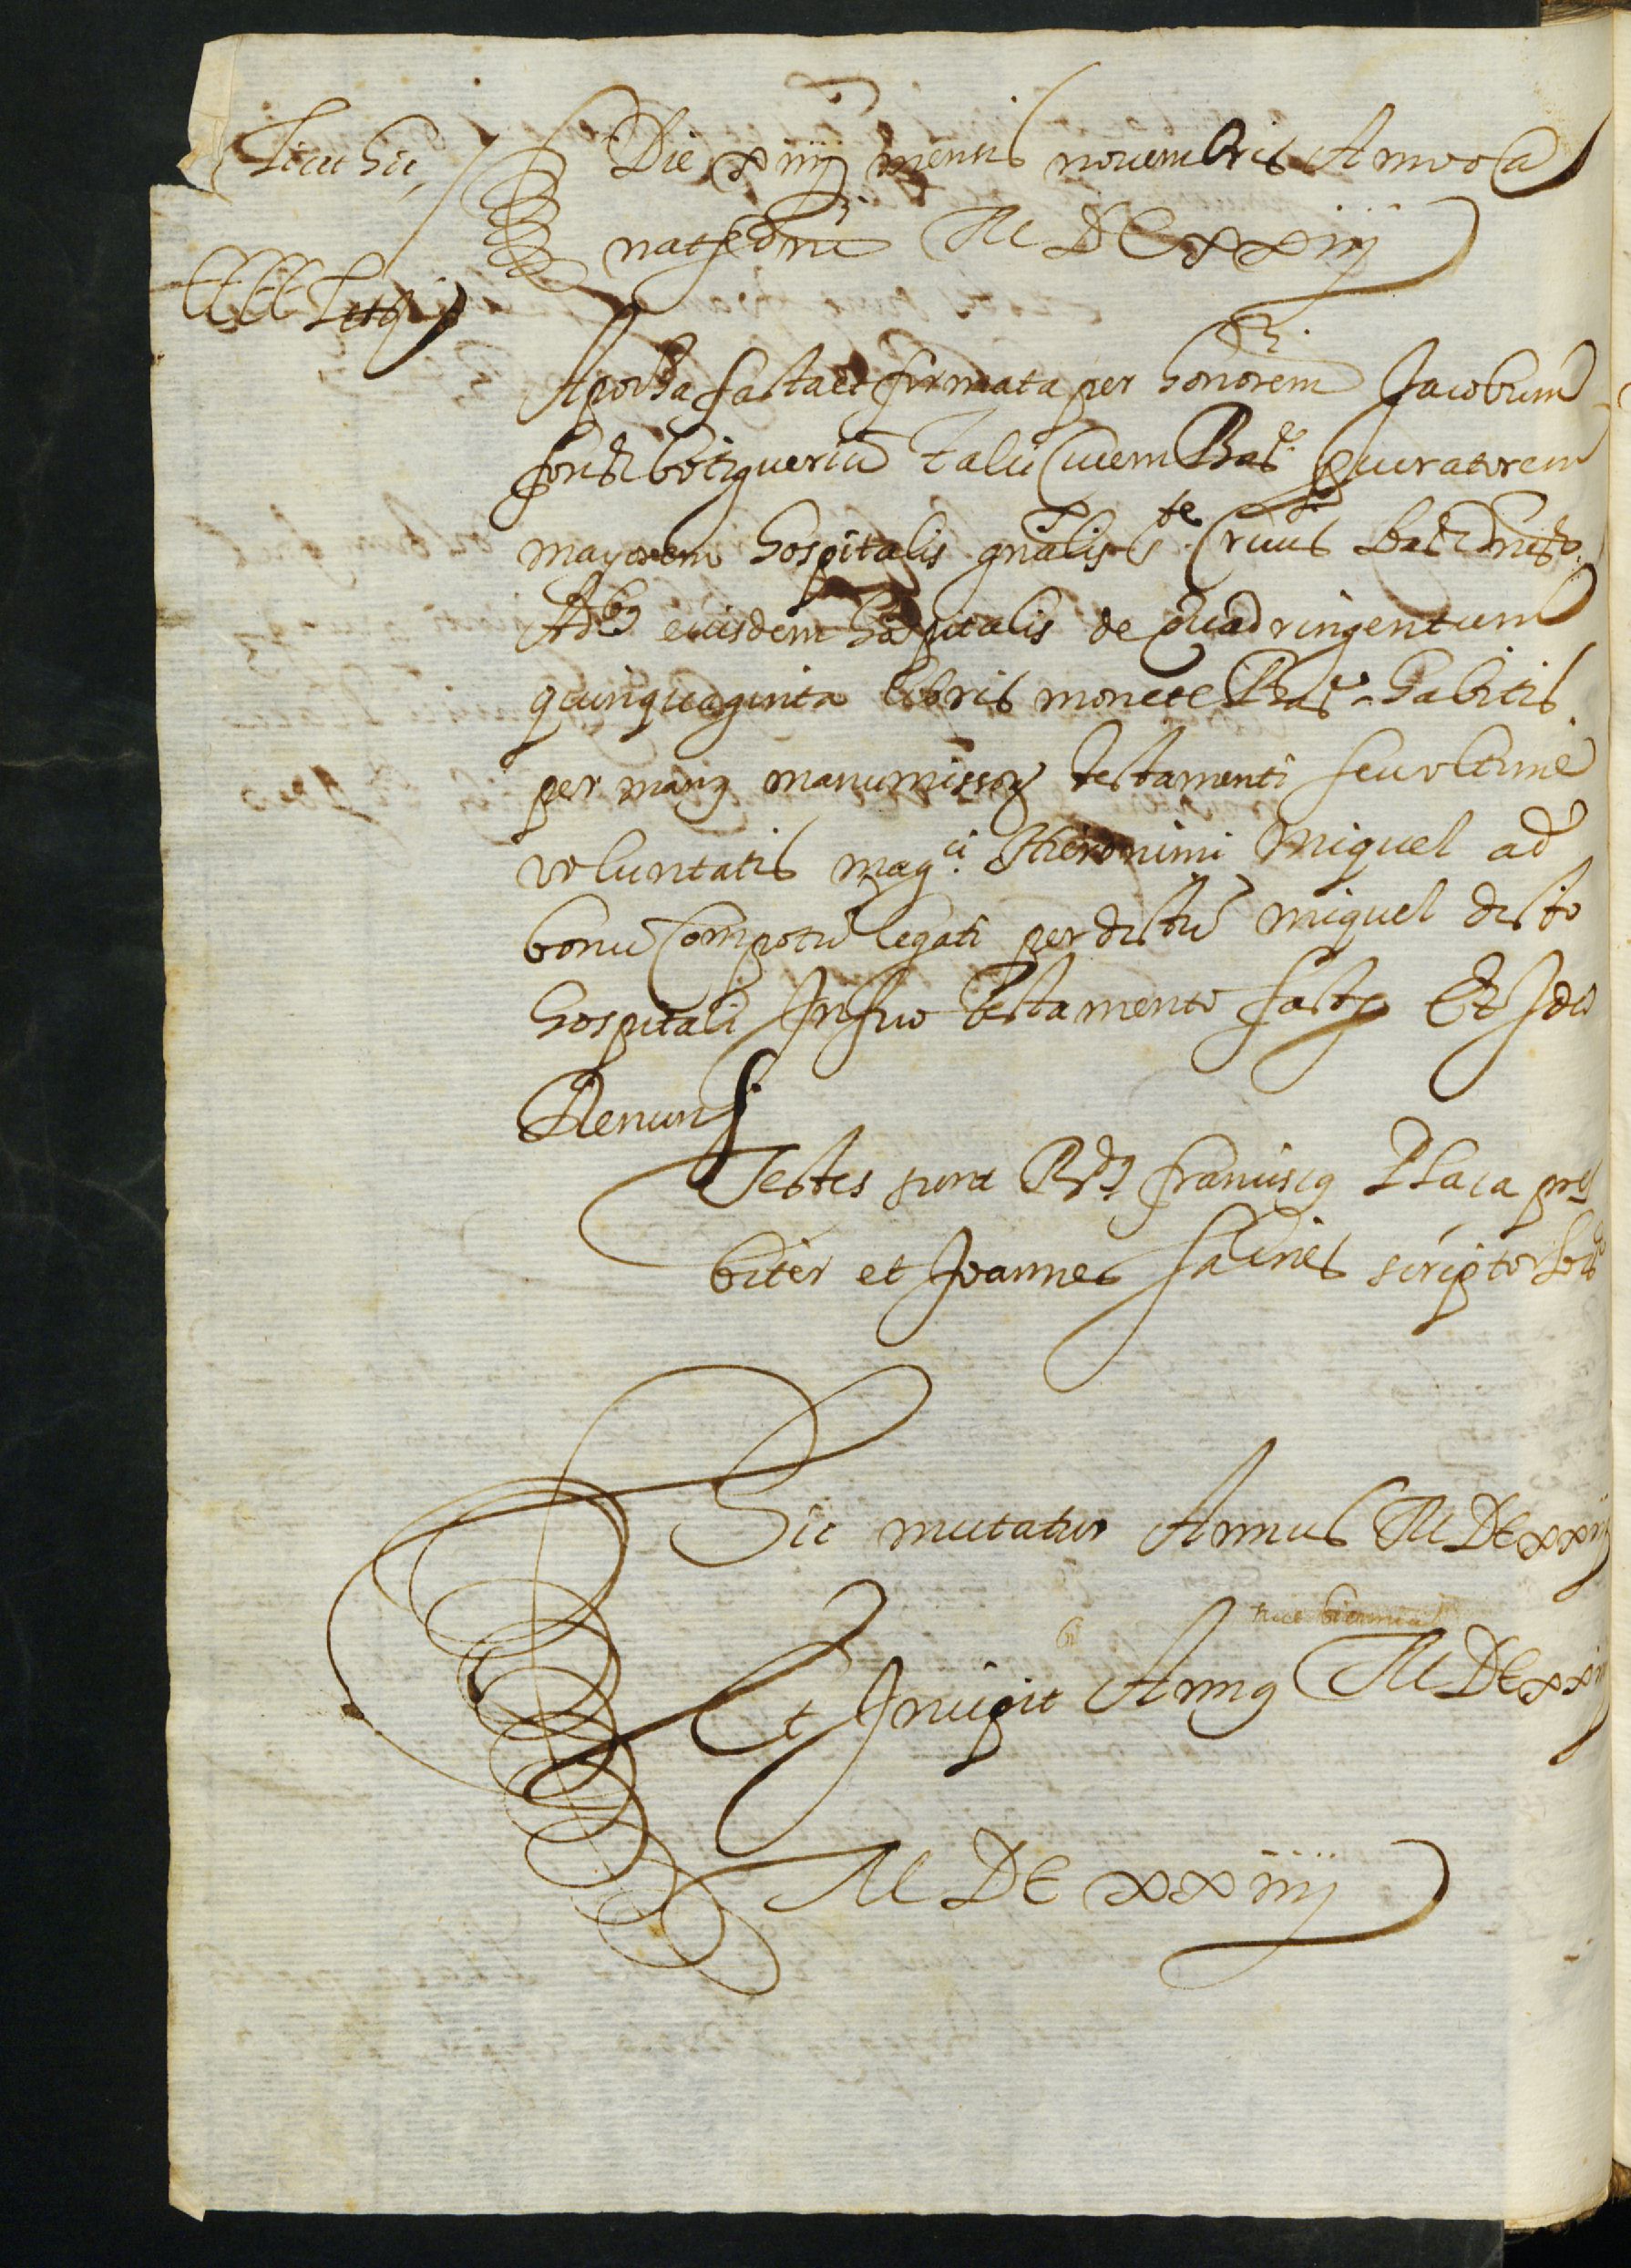 Die xiiij mensis nouembris Anno a
nat.e dni M DC xxiij
Apocha facta et firmata per honorem Jacobum
font botiguerium talu Ciuem Bar.e procuratorem
mayorem hospitalis gnalis S.te Crucis Bar.e
eiusdem hospitalis de quadringentum
quinquaginta libris monete Bar.e habitis
per manus manumissorum testamenti seu vltime
voluntatis mag.ci Hieronimi Miquel ad
bonu compotu legati per dictu miquel dicto
hospitali In suo testamento facto Et Ideo
Renun.s
Testes sunt R.dus franciscus Plaça pres
biter et Joannes Salines scriptor
Sic mutatur Annus M DC xxiij
Et Incipit Annus M DC xxiiij
M DC xxiiij